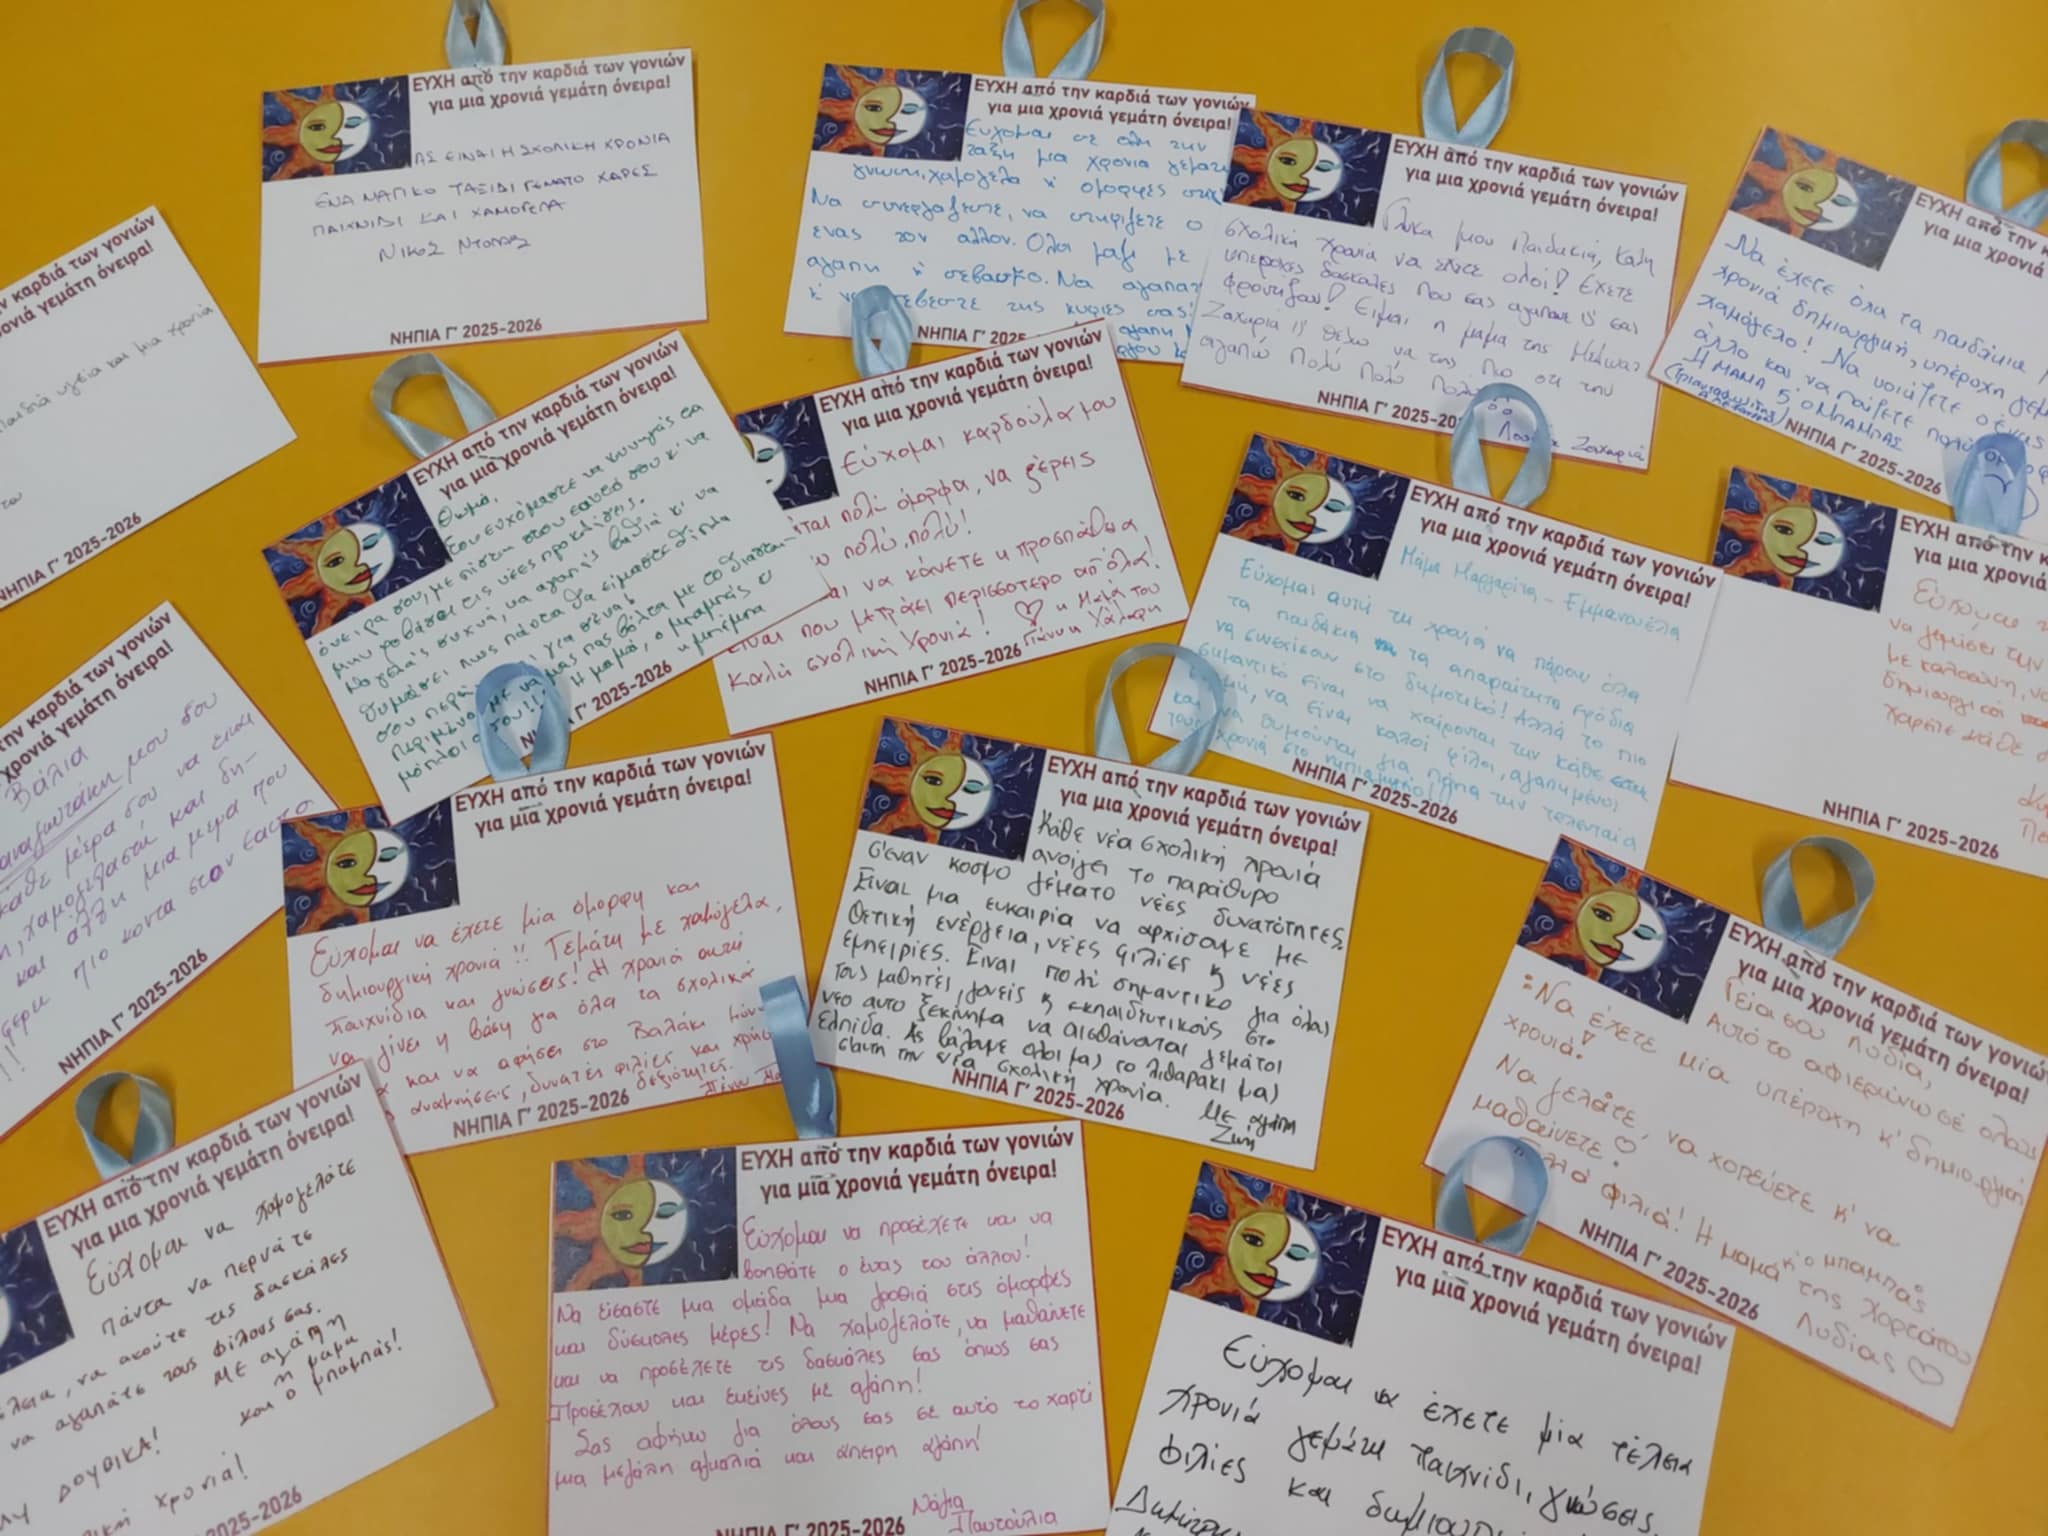 ΕΥΧΗ από την καρδιά των γονιών
για μια χρονιά γεμάτη όνειρα!
ΑΣ ΕΙΝΑΙ Η ΣΧΟΛΙΚΗ ΧΡΟΝΙΑ
ΕΝΑ ΜΑΓΙΚΟ ΤΑΞΙΔΙ ΓΕΜΑΤΟ ΧΑΡΕΣ
ΠΑΙΧΝΙΔΙ ΚΑΙ ΧΑΜΟΓΕΛΑ
ΝΙΚΟΣ
ΝΗΠΙΑ Γ' 2025-2026
ΕΥΧΗ από την καρδιά των γονιών
για μια χρονιά γεμάτη όνειρα!
Ευχομαι σε ολη την
ταξη μια χρονια γεματη
γνωση, χαμογελα κ ομορφες
Να συνεργαζεστε, να στηριζετε ο
ενας τον αλλον. Ολοι μαζι με
αγαπη κ σεβασμο. Να αγαπατ
της κυριες σας!
ΝΗΠΙΑ Γ' 2025-2026
ΕΥΧΗ από την καρδιά των γονιών
για μια χρονιά γεμάτη όνειρα!
Γλυκα μου παιδακια, καλη
σχολικη χρονια να εχετε ολοι! Εχετε
υπεροχες δασκαλες που σας αγαπανε κ σας
φροντιζουν! Ειμαι η μαμα της
Ζαχαρια κ θελω να της πω οτι την
αγαπώ πολύ πολύ
Ζαχαριά
ΝΗΠΙΑ Γ' 2025-20
ΕΥΧΗ από την κ
για μια χρονιά
Να έχετε όλα τα παιδάκια
χρονιά δημιουργική, υπέροχη γεμ
χαμόγελο! Να νοιάζετε ο ένας
άλλο και να παίζετε πολύ
Η ΜΑΜΑ & Ο ΜΠΑΜΠΑΣ
ΝΗΠΙΑ Γ' 2025-2026
ην καρδιά των γονιών
ονιά γεμάτη όνειρα!
παιδιά υγεία και μια χρονιά
ΝΗΠΙΑ Γ' 2025-2026
ΕΥΧΗ από την καρδιά των γονιών
για μια χρονιά γεμάτη όνειρα!
Θωμά,
σου ευχόμαστε να κυνηγάς τα
όνειρα σου, με πίστη στον εαυτό σου κ' να
μην φοβάσαι τις νέες προκλήσεις.
Να γελάς συχνά, να αγαπάς βαθιά κ' να
θυμάσαι πως πάντα θα είμαστε δίπλα
σου
Περιμένουμε να μας πας βόλτα με το διαστη-
μόπλοιο σου!!! Η μαμά, ο μπαμπάς κ
η μπέμπα
2025-2026
ΕΥΧΗ από την καρδιά των γονιών
για μια χρονιά γεμάτη όνειρα!
Εύχομαι καρδούλα μου
πολύ όμορφα, να ξέρεις
πολύ, πολύ!
να κάνετε κ προσπάθεια
είναι που μετράει περισσότερο απ' όλα!
Καλή σχολική χρονιά! ♡ η Μαμά του
Γιάννη
ΝΗΠΙΑ Γ' 2025-2026
ΕΥΧΗ από την καρδιά των γονιών
για μια χρονιά γεμάτη όνειρα!
Μάμα Μαργαρίτα - Εμμανουέλα
Εύχομαι αυτή τη χρονιά να πάρουν όλα
τα παιδάκια τα απαραίτητα εφόδια
να συνεχίσουν στο δημοτικό! Αλλά το πιο
σημαντικό είναι να χαίρονται την κάθε
να είναι καλοί φίλοι, αγαπημένοι
και να θυμούνται για πάντα την τελευταία
τους χρονιά στο νηπιαγωγείο!!!
ΝΗΠΙΑ Γ' 2025-2026
ΕΥΧΗ από την κ
για μια χρονιά
Εύχομαι
να γεμίσει την
με καλοσύνη, να
δημιουργικοί
χαρείτε κάθε
ΝΗΠΙΑ Γ' 2025-2026
την καρδιά των γονιών
χρονιά γεμάτη όνειρα!
Βάλια
μου σου
κάθε μέρα σου να είναι
χαμογελαστή και δη-
και άλλη μια μέρα που
φέρει πιο κοντα στον εαυτό
!!
ΝΗΠΙΑ Γ' 2025-2026
ΕΥΧΗ από την καρδιά των γονιών
για μια χρονιά γεμάτη όνειρα!
Εύχομαι να έχετε μία όμορφη και
δημιουργική χρονιά!! Γεμάτη με χαμόγελα,
παιχνίδια και γνώσεις! Η χρονιά αυτή
να γίνει η βάση για όλα τα σχολικά
και να αφήσει στο Βαλάκι μόνο
αναμνήσεις, δυνατές φιλίες και χρήσ
δεξιότητες.
ΝΗΠΙΑ Γ' 2025-2026
ΕΥΧΗ από την καρδιά των γονιών
για μια χρονιά γεμάτη όνειρα!
Κάθε νέα σχολική χρονιά
ανοίγει το παράθυρο
σ'έναν κοσμο γεμάτο νέες δυνατότητες.
Είναι μια ευκαιρία να αρχίσουμε με
θετική ενέργεια, νέες φιλίες κ νέες
εμπειρίες. Είναι πολύ σημαντικο για όλους
τους μαθητές, γονείς κ εκπαιδευτικούς στο
νεο αυτο ξεκίνημα να αισθάνονται γεμάτοι
ελπίδα. Ας βάλουμε ολοι μας το λιθαρακι μας
σ'αυτη την νέα σχολική χρονια.
Με αγάπη
Ζωή
ΝΗΠΙΑ Γ' 2025-2026
ΕΥΧΗ από την καρδιά των γονιών
για μια χρονιά γεμάτη όνειρα!
Γεια σου Λυδία,
Αυτό το αφιερώνω σε όλους
:Να έχετε μια υπέροχη κ' δημιουργική
χρονιά!
Να γελάτε, να χορεύετε κ' να
μαθαίνετε ♡
Πολλά φιλιά! Η μαμά κ' ο μπαμπάς
της
Λυδίας ♡
ΝΗΠΙΑ Γ' 2025-2026
ΕΥΧΗ από την καρδιά των γονιών
για μια χρονιά γεμάτη όνειρα!
Εύχομαι να χαμογελάτε
πάντα να περνάτε
τέλεια, να ακούτε τις δασκάλες
να αγαπάτε τους φίλους σας.
ΜΕ αγάπη
η μαμα
και ο μπαμπάς!
ΔΟΥΒΙΚΑ!
χρονιά!
2025-2026
ΕΥΧΗ από την καρδιά των γονιών
για μια χρονιά γεμάτη όνειρα!
Εύχομαι να προσέχετε και να
βοηθάτε ο ένας τον άλλον!
Να είσαστε μια ομάδα μια γροθιά στις όμορφες
και δύσκολες μέρες! Να χαμογελάτε, να μαθαίνετε
και να προσέχετε τις δασκάλες σας όπως σας
προσέχουν και εκείνες με αγάπη!
Σας αφήνω για όλους σας σε αυτό το χαρτί
μια μεγάλη αγκαλιά και άπειρη αγάπη!
Νάγια
Παντούλια
ΝΗΠΙΑ Γ' 2025-2026
ΕΥΧΗ από την καρδιά των γονιών
για μια χρονιά γεμάτη όνειρα!
Εύχομαι να έχετε μία τέλεια
χρονιά γεμάτη παιχνίδι, γνώσεις,
φιλίες και